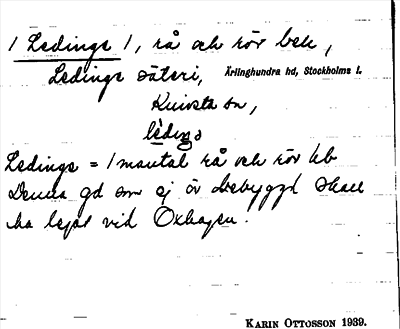 1 Ledinge 1, rå och rör bele,
Ledinge säteri, Ärlinghundra hd, Stockholms l.
Knivsta sn,
lèdiŋə
Ledinge = 1 mantal rå och rör
Denna gd som ej är bebyggd skall
ha legat vid Oxhagen.
KARIN OTTOSSON 1939.